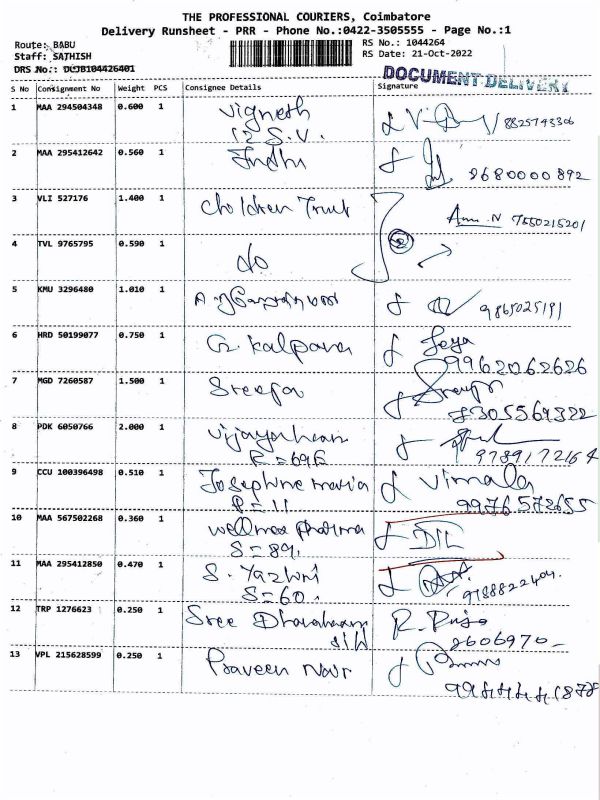 THE PROFESSIONAL COURIERS, Coimbatore
Delivery Runsheet - PRR - Phone No.:0422-3505555 - Page No.:1
Route: BABU
Staff: SATHISH
DRS No.: DLJB104426401
RS No.: 1044264
RS Date: 21-Oct-2022
DOCUMENT DELIVERY
S No Consignment No Weight PCS Consignee Details Signature
1 MAA 294504348 0.600 1 Vignesh
12 S.V. 8825743306
2 MAA 295412642 0.560 1 Indhu 9680000892
3 VLI 527176 1.400 1 Children Trust N 7550215201
4 TVL 9765795 0.590 1 do
5 KMU 3296480 1.010 1 9865025191
6 HRD 50199077 0.750 1 G. Kalpana Jeya
9962062626
7 MGD 7260587 1.500 1 Sreeja
8305569322
8 PDK 6050766 2.000 1
9789172164
9 CCU 100396498 0.510 1 Josephine maria Vimala
P=11 9976572655
10 MAA 567502268 0.360 1 wellmax pharma DIL
S=89.
11 MAA 295412850 0.470 1 S. Yazhini
S=60. 9788822404.
12 TRP 1276623 0.250 1 Sree R.
2606970
13 VPL 215628599 0.250 1 Praveen Nair